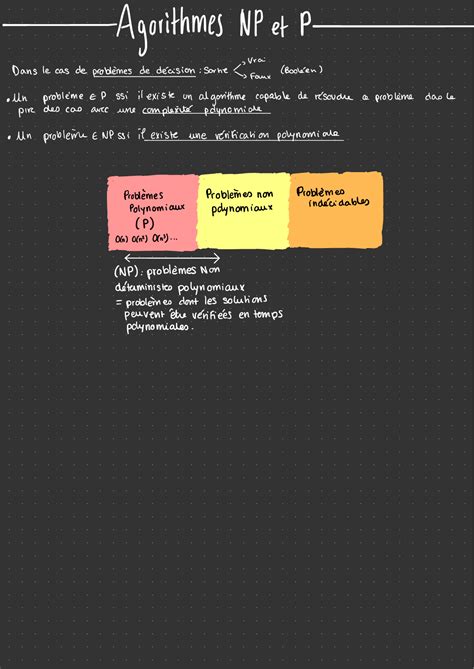 Agorithmes NP et P
Dans le cas de problèmes de décision : Sortie Vrai Faux (Booléen)
• Un problème ∈ P ssi il existe un algorithme capable de résoudre ce problème dans le
pire des cas avec une complexité polynomiale
• Un problème ∈ NP ssi il existe une vérification polynomiale
Problèmes
Polynomiaux
(P)
O(n) O(n²) O(n³)...
Problèmes non
polynomiaux
Problèmes
indécidables
(NP) : problèmes Non
déterministes polynomiaux
= problèmes dont les solutions
peuvent être vérifiées en temps
polynomiales.